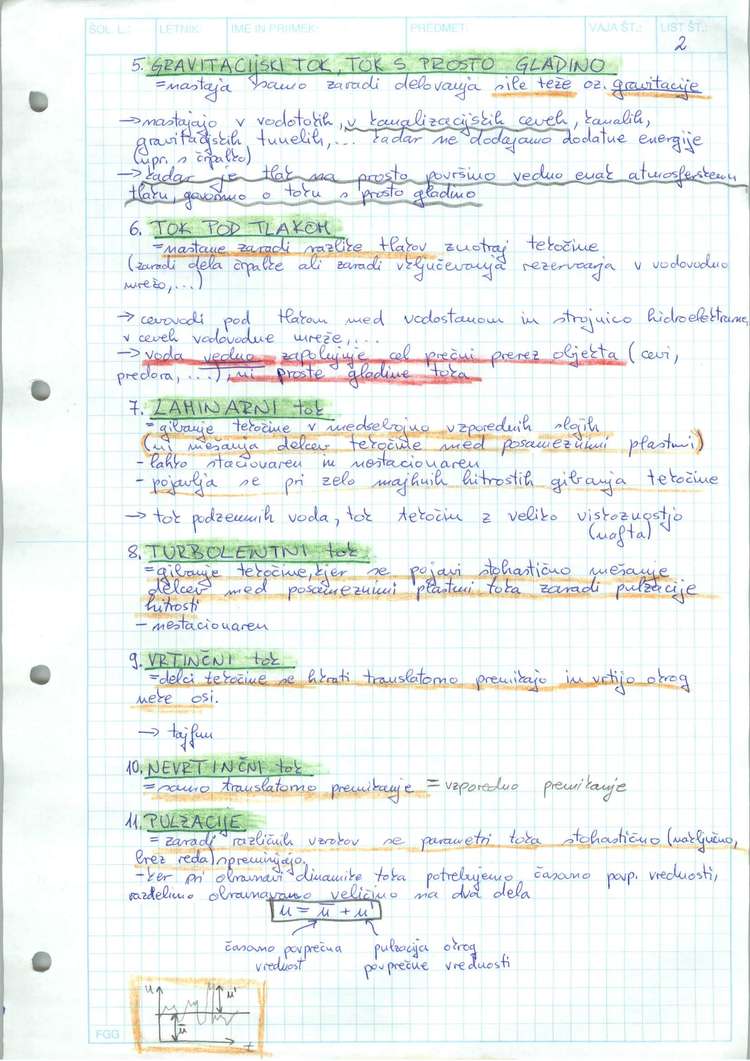 ŠOL. L.: LETNIK: IME IN PRIIMEK: PREDMET: VAJA ŠT.: LIST ŠT.:
2
5. GRAVITACIJSKI TOK, TOK S PROSTO GLADINO
=nastaja samo zaradi delovanja sile teže oz. gravitacije
→nastajajo v vodotokih, v kanalizacijskih ceveh, kanalih,
gravitacijskih tunelih,... kadar ne dodajamo dodatne energije
(npr. s črpalko)
→kadar je tlak na prosto površino vedno enak atmosferskemu
tlaku, govorimo o toku s prosto gladino
6. TOK POD TLAKOM
=nastane zaradi razlike tlakov znotraj tekočine
(zaradi dela črpalke ali zaradi vključevanja rezervoarja v vodovodno
mrežo,...)
→ cevovodi pod tlakom med vodostanom in strojnico hidroelektrarne,
v ceveh vodovodne mreže,...
→voda vedno zapolnjuje cel prečni prerez objekta (cevi,
predora,...), ni proste gladine toka
7. LAMINARNI tok
=gibanje tekočine v medsebojno vzporednih slojih
(ni mešanja delcev tekočine med posameznimi plastmi)
- lahko stacionaren in nestacionaren
- pojavlja se pri zelo majhnih hitrostih gibanja tekočine
→ tok podzemnih voda, tok tekočin z veliko viskoznostjo
(nafta)
8. TURBOLENTNI tok
=gibanje tekočine, kjer se pojavi stohastično mešanje
delcev med posameznimi plastmi toka zaradi pulzacije
hitrosti
- nestacionaren
9. VRTINČNI tok
=delci tekočine se hkrati translatorno premikajo in vrtijo okrog
neke osi.
→ tajfun
10. NEVRTINČNI tok
=samo translatorno premikanje = vzporedno premikanje
11. PULZACIJE
= zaradi različnih vzrokov se parametri toka stohastično (naključno,
brez reda) spreminjajo.
-ker pri obravnavi dinamike toka potrebujemo časovno povp. vrednosti,
razdelimo obravnavano veličino na dva dela
u = u̅ + u'
časovno povprečna pulzacija okrog
vrednost povprečne vrednosti
u u'
u̅
t
FGG